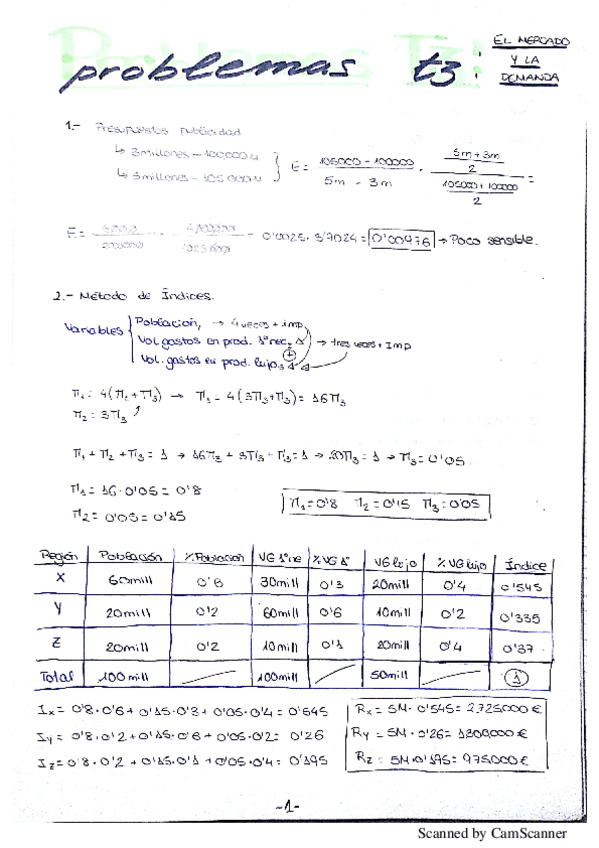 problemas t3:
EL MERCADO
Y LA
DEMANDA
1.- Presupuestos publicidad
↳ 3millones - 100,000u
↳ 5millones - 105 000u
E = 105000 - 100000 / 5m - 3m · (5m + 3m / 2) / (105000 + 100000 / 2) =
E = 0'0025 · 3'9024 = 0'00976 → Poco sensible.
2.- Método de Índices.
Variables
Población, → 4 veces + imp
Vol gastos en prod. 1ªnec,
Vol. gastos en prod. lujo.
→ tres veces + Imp
π1 = 4(π2 + π3) → π1 = 4(3π3+π3) = 16π3
π2 = 3π3
π1 + π2 + π3 = 1 → 16π3 + 3π3 + π3 = 1 → 20π3 = 1 → π3 = 0'05.
π1 = 16 · 0'05 = 0'8
π2 = 0'05 = 0'15
π1 = 0'8 π2 = 0'15 π3 = 0'05
Región Población %Población VG 1ªne %VG 1ª VG lujo % VG lujo Índice
X 60mill 0'6 30mill 0'3 20mill 0'4 0'545
Y 20mill 0'2 60mill 0'6 10mill 0'2 0'335
Z 20mill 0'2 10mill 0'1 20mill 0'4 0'37
Total 100mill 100mill 50mill 1
Ix = 0'8·0'6 + 0'15·0'3 + 0'05·0'4 = 0'545
Iy = 0'8·0'2 + 0'15·0'6 + 0'05·0'2 = 0'26
Iz = 0'8·0'2 + 0'15·0'1 + 0'05·0'4 = 0'195
Rx = 5M · 0'545 = 2,725000 €
Ry = 5M · 0'26 = 1300,000 €
Rz = 5M · 0'195 = 975000 €
-1-
Scanned by CamScanner